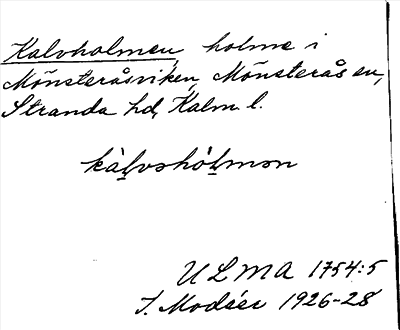 Kalvholmen, holme i
Mönsteråsviken, Mönsterås sn,
Stranda hd, Kalm l.
kàlvshòlmən
ULMA 1754:5
I. Modéer 1926-28